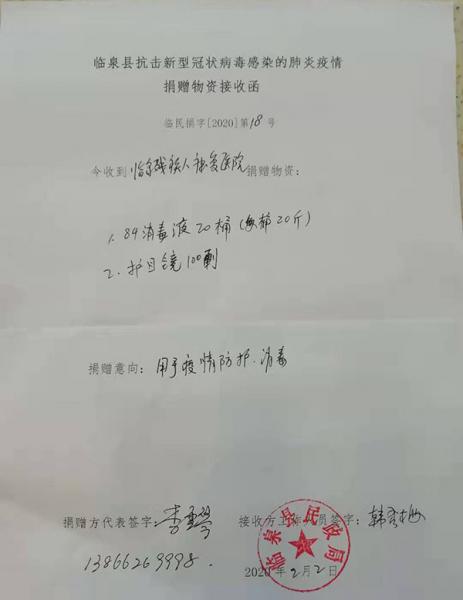 临泉县抗击新型冠状病毒感染的肺炎疫情
捐赠物资接收函
临民捐字[2020]第18号
今收到 临泉残疾人康复医院 捐赠物资：
1. 84消毒液20桶(每桶20斤)
2. 护目镜100副
捐赠意向：用于疫情防护、消毒
捐赠方代表签字：李 接收方工作人员签字：韩秀梅
13866269998.
临泉县民政局
2020年2月2日